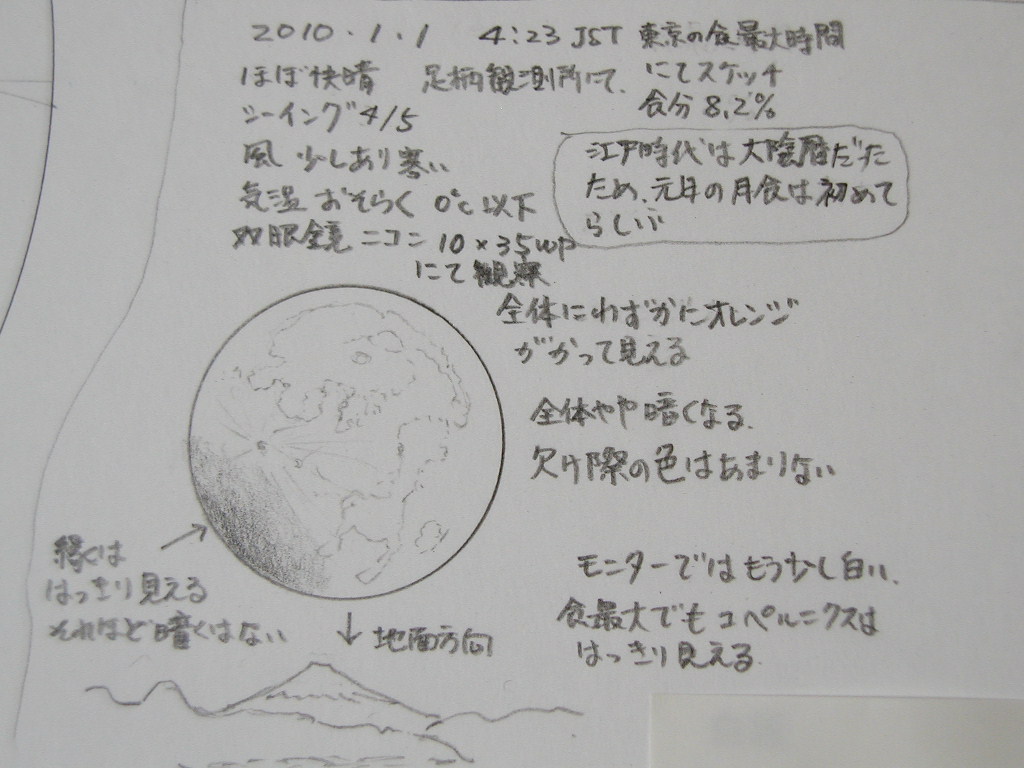 2010.1.1 4:23 JST 東京の食最大時間
にてスケッチ
ほぼ快晴 足柄観測所にて.
食分 8.2%
シーイング 4/5
風 少しあり寒い
気温 おそらく 0°c 以下
双眼鏡 ニコン 10×35wp
にて観察.
江戸時代は大陰暦だった
ため、元年の月食は初めて
らしい
全体にわずかにオレンジ
がかって見える
全体やや暗くなる.
欠け際の色はあまりない
縁くは
はっきり見える
それほど暗くはない
モニターではもう少し白い.
食最大でもコペルニクスは
はっきり見える.
↓ 地面方向